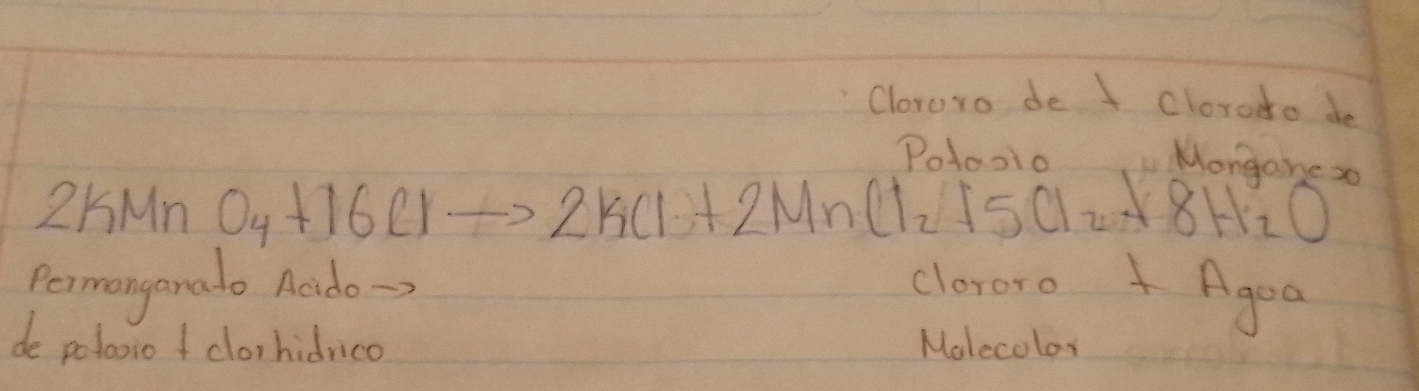 Cloruro de + Clorodo de
Potasio Manganeso
2KMnO₄ + 16Cl → 2KCl + 2MnCl₂ + 5Cl₂ + 8H₂O
Permanganato Acido →
de potasio + clorhidrico
Clororo + Agua
Molecolar